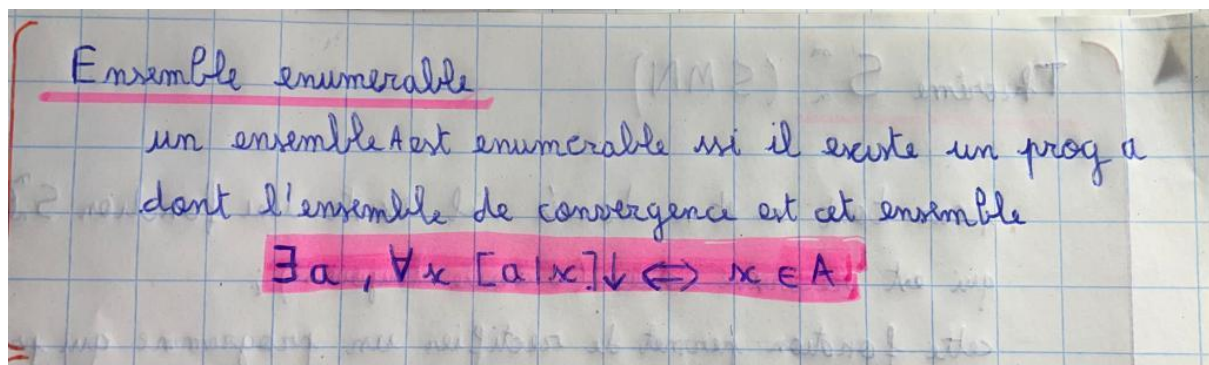 Ensemble enumerable
un ensemble A est enumerable ssi il existe un prog a
dont l'ensemble de convergence est cet ensemble
∃ a , ∀ x [a|x]↓ ⇔ x ∈ A